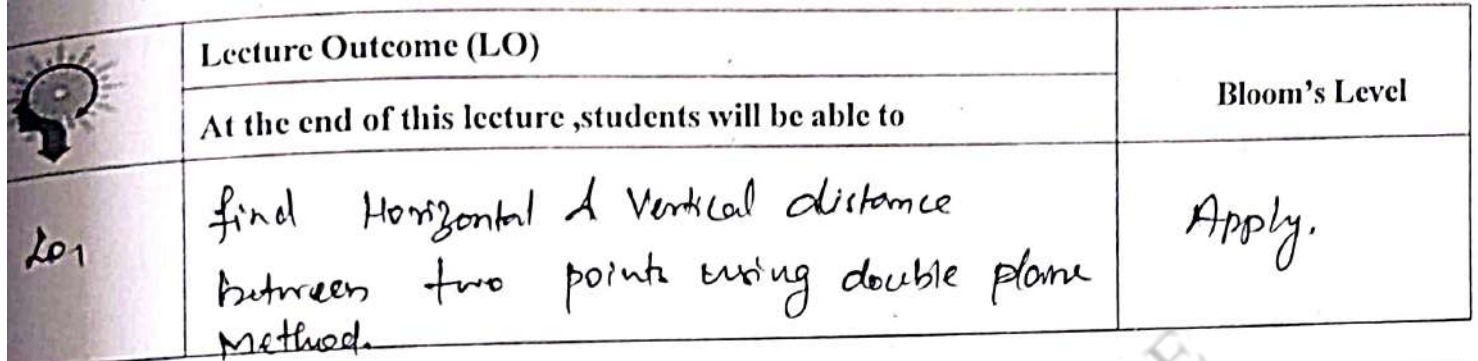 Lecture Outcome (LO)
Bloom's Level
At the end of this lecture ,students will be able to
LO1
find Horizontal & Vertical distance
between two points using double plane
Method.
Apply.